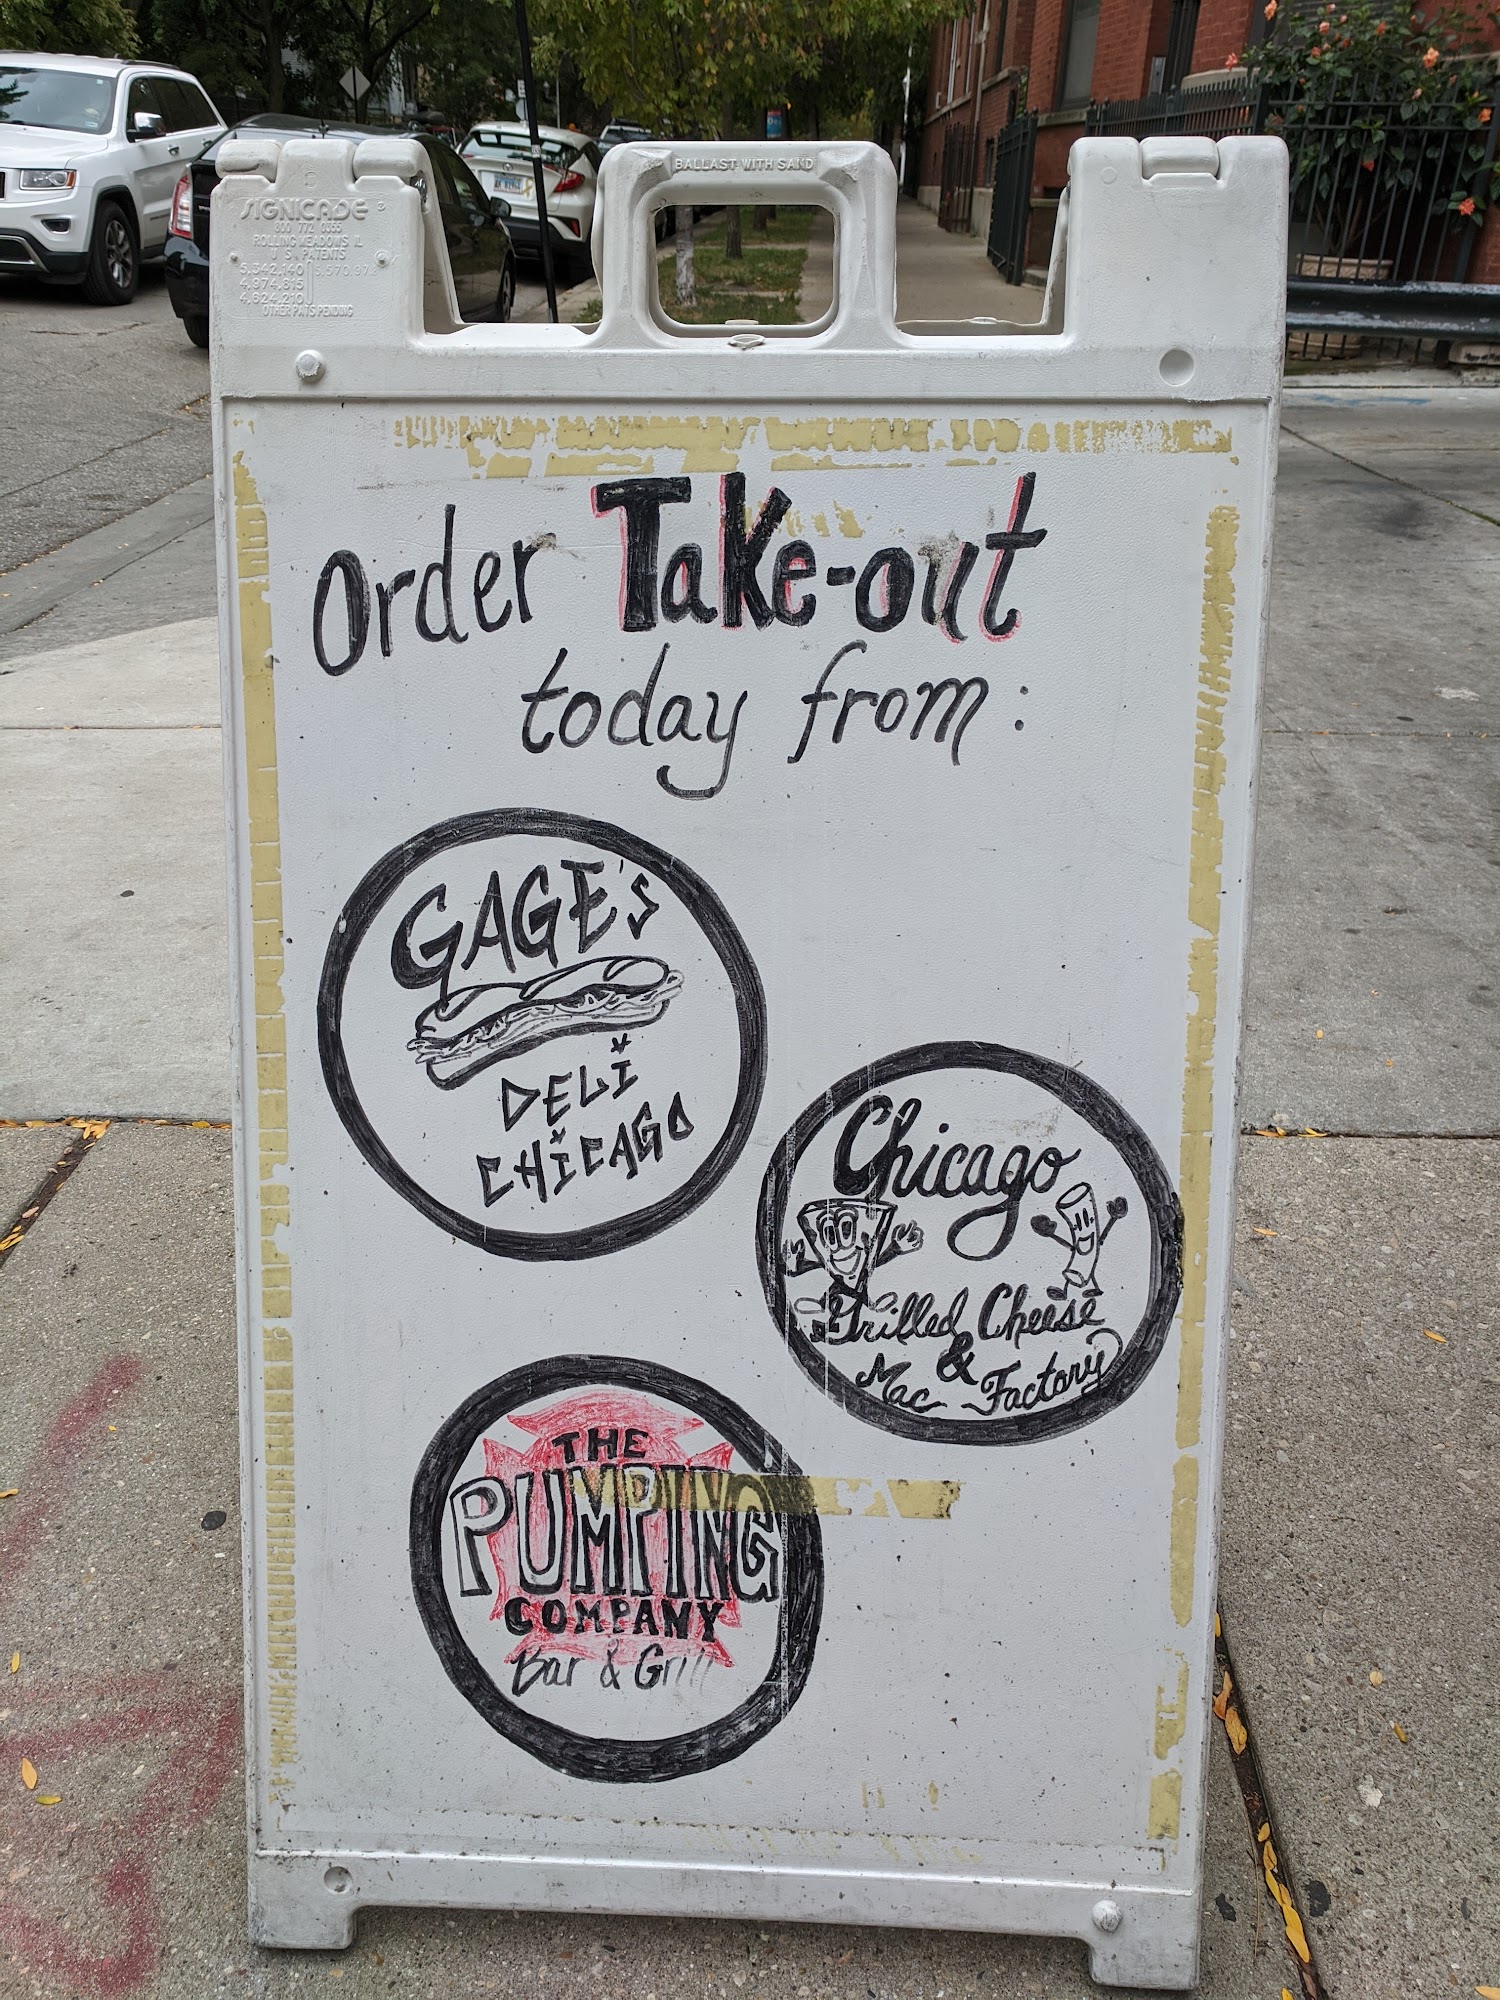 BALLAST WITH SAND
SIGNICADE
800 772 0355
ROLLING MEADOWS IL
U.S. PATENTS
4,974,815
4,924,210
OTHER PATS PENDING
Order Take-out
today from:
GAGE'S
DELI
CHICAGO
Chicago
Grilled Cheese
&
Mac Factory
THE
PUMPING
COMPANY
Bar & Grill